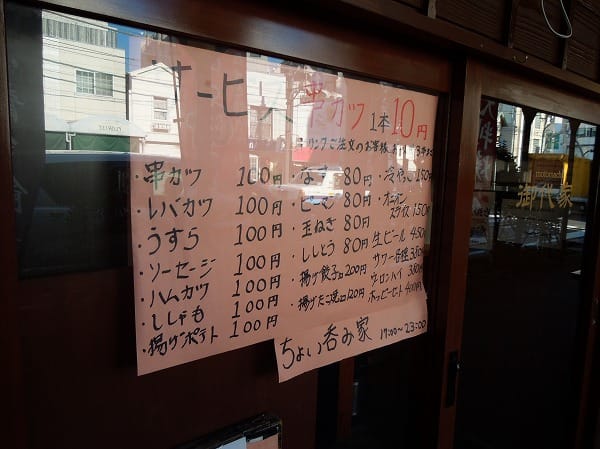 サービス 串カツ 1本 10円
ドリンクご注文のお客様
・串カツ 100円
・レバカツ 100円
・うずら 100円
・ソーセージ 100円
・ハムカツ 100円
・ししゃも 100円
・揚げポテト 100円
・なす 80円
・ピーマン 80円
・玉ねぎ 80円
・ししとう 80円
・揚げ餃子 200円
・揚げたこ焼 120円
・冷やっこ 150円
・オニオンスライス 150円
生ビール 450
サワー各種 350
ウーロンハイ 350
ホッピーセット 400円
ちょい呑み家 17:00〜23:00
motonachi
御代家